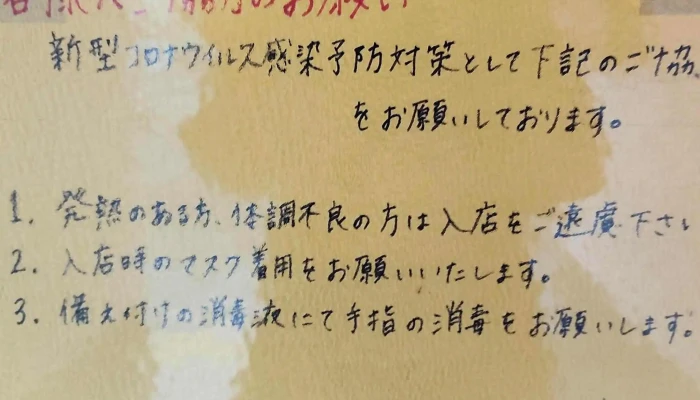 客様へご協力のお願い
新型コロナウイルス感染予防対策として下記のご協
をお願いしております。
1. 発熱のある方、体調不良の方は入店をご遠慮下さい
2. 入店時のマスク着用をお願いいたします。
3. 備え付けの消毒液にて手指の消毒をお願いします。